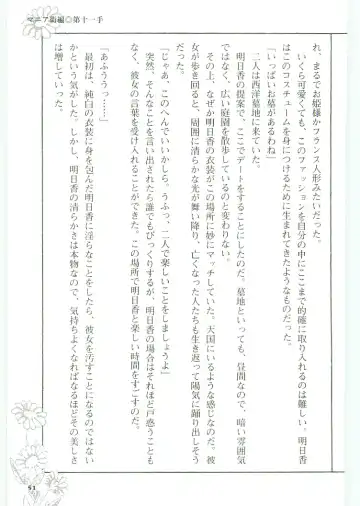 マニア術編◎第十一手
れ、まるでお姫様かフランス人形みたいだった。
いくら可愛くても、このファッションを自分の中にここまで的確に取り入れるのは難しい。明日香
はこのコスチュームを身につけるために生まれてきたようなものだった。
「いっぱいお墓があるわね」
二人は西洋墓地に来ていた。
明日香の提案で、ここでデートをすることにしたのだ。墓地といっても、昼間なので、暗い雰囲気
ではなく、広い庭園を散歩しているのと変わりない。
その上、なぜか明日香の衣装がこの場所に妙にマッチしていた。天国にいるような感じなのだ。彼
女が歩き回ると、周囲に清らかな光が舞い降り、亡くなった人たちも生き返って陽気に踊り出しそう
だった。
「じゃあ、このへんでいいかしら。うふっ、二人で楽しいことをしましょうよ」
突然、そんなことを言い出されたら誰でもびっくりするが、明日香の場合はそれほど戸惑うことも
なく、彼女の言葉を受け入れることができた。この場所で明日香と楽しい時間をすごすのだ。
「あふううっ……」
最初は、純白の衣装に身を包んだ明日香に淫らなことをしたら、彼女を汚すことになるのではない
かという気がした。しかし、明日香の清らかさは本物なので、気持ちよくなればなるほどその美しさ
は増していった。
51